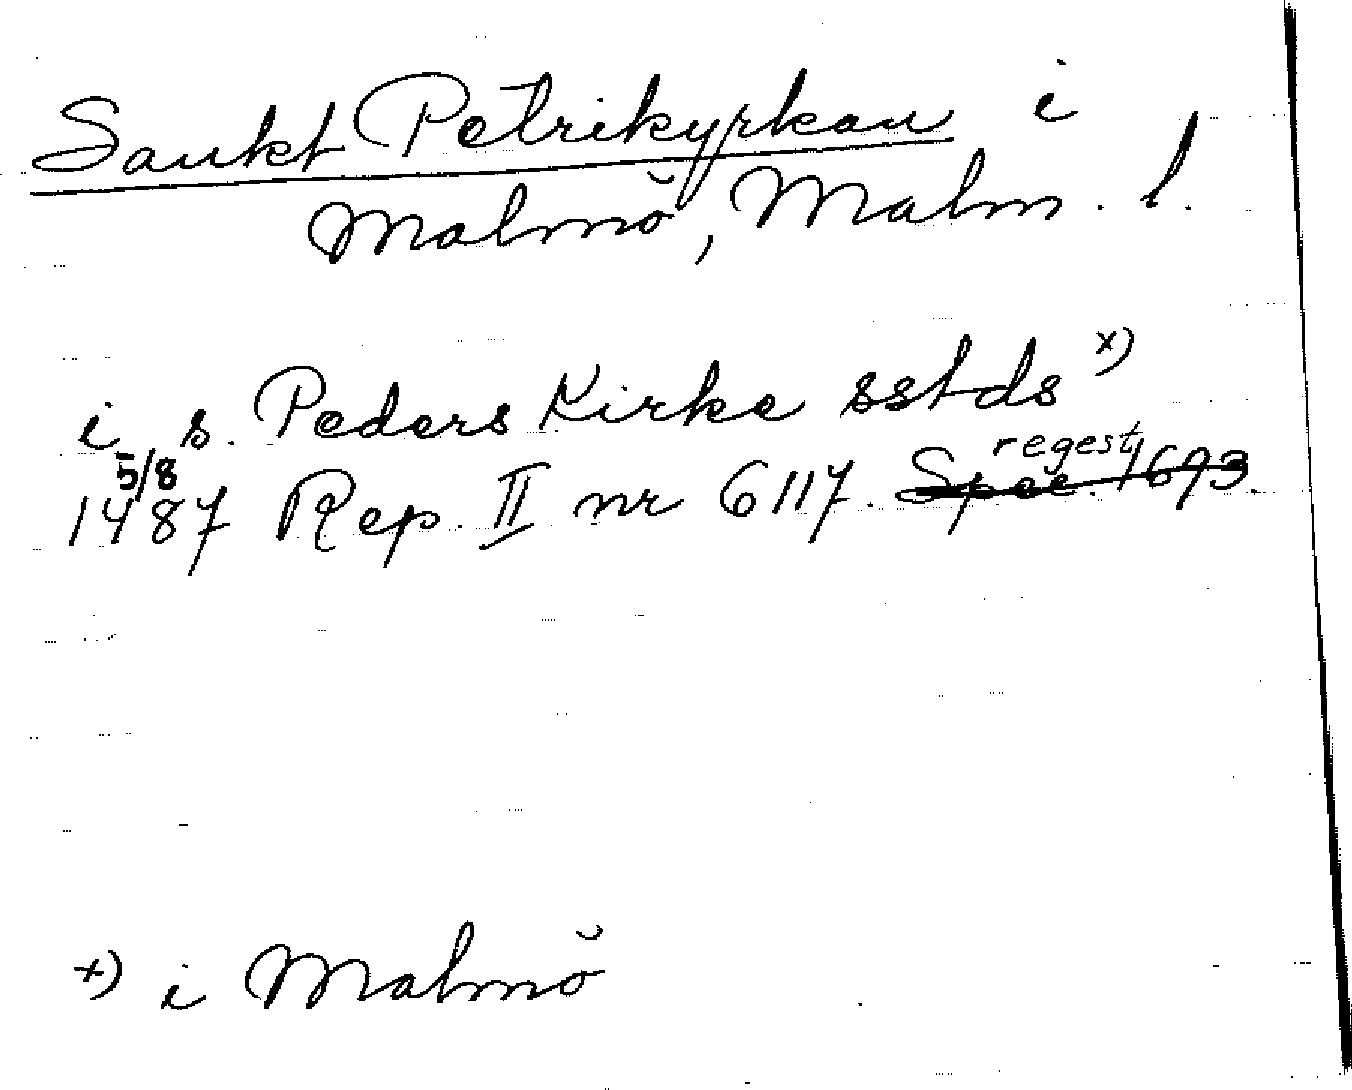 Sankt Petrikyrkan i
Malmö, Malm. l.
i s. Peders Kirke sstds x)
5/8 regest
1487 Rep. II nr 6117. Spec. 1693.
x) i Malmö